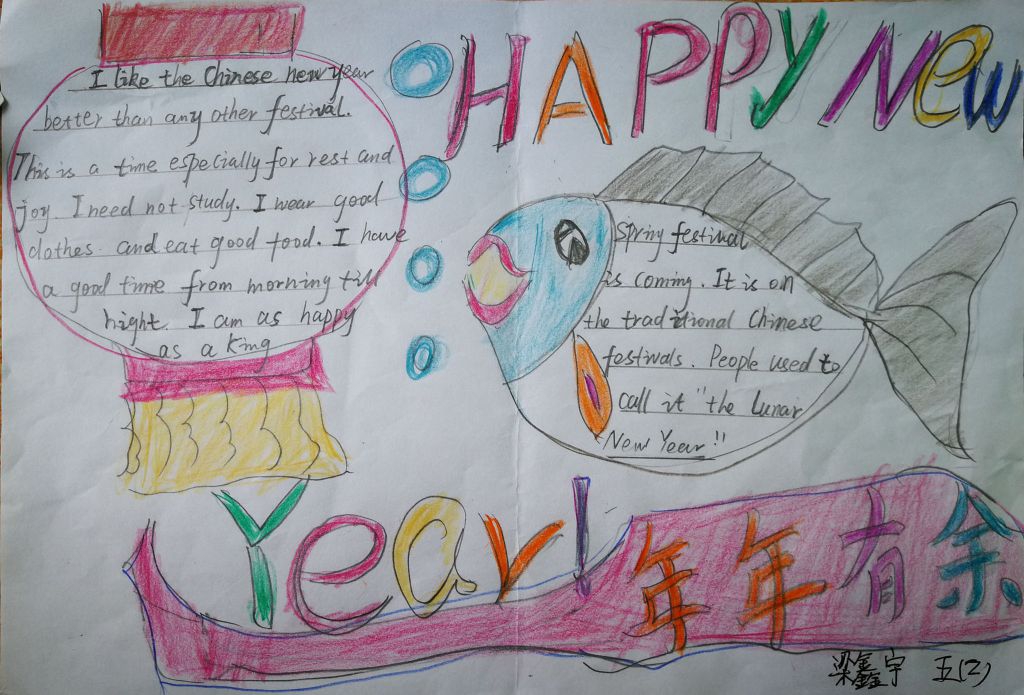 HAPPY New
I like the Chinese new year
better than any other festival.
This is a time especially for rest and
joy. I need not study. I wear good
clothes. and eat good food. I have
a good time from morning till
night. I am as happy
as a king
Spring festival
is coming. It is on
the traditional Chinese
festivals. People used to
call it "the Lunar
New Year!!
Year!
年年有余
梁鑫宇 五(2)